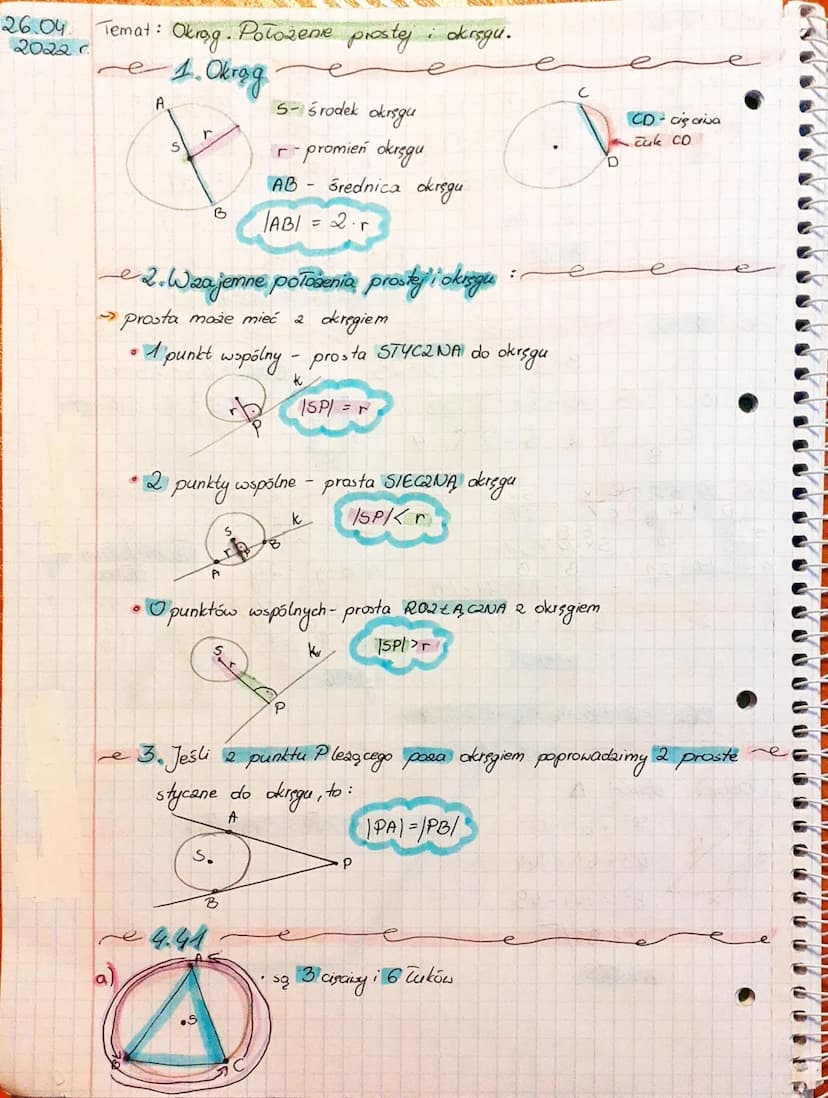 26.04.
2022 r.
Temat: Okrąg. Położenie prostej i okręgu.
1. Okrąg
A
S
r
B
S - środek okręgu
r - promień okręgu
AB - średnica okręgu
|AB| = 2·r
C
D
CD - cięciwa
łuk CD
2. Wzajemne położenia prostej i okręgu :
→ prosta może mieć z okręgiem
• 1 punkt wspólny - prosta STYCZNA do okręgu
r
P
k
|SP| = r
• 2 punkty wspólne - prosta SIECZNĄ okręgu
S
r
P
A
B
k
|SP| < r
• 0 punktów wspólnych - prosta ROZŁĄCZNA z okręgiem
S
r
P
k
|SP| > r
3. Jeśli z punktu P leżącego poza okręgiem poprowadzimy 2 proste
styczne do okręgu, to :
A
S
B
P
|PA| = |PB|
4.41
a)
A
S
B
C
· są 3 cięciwy i 6 łuków